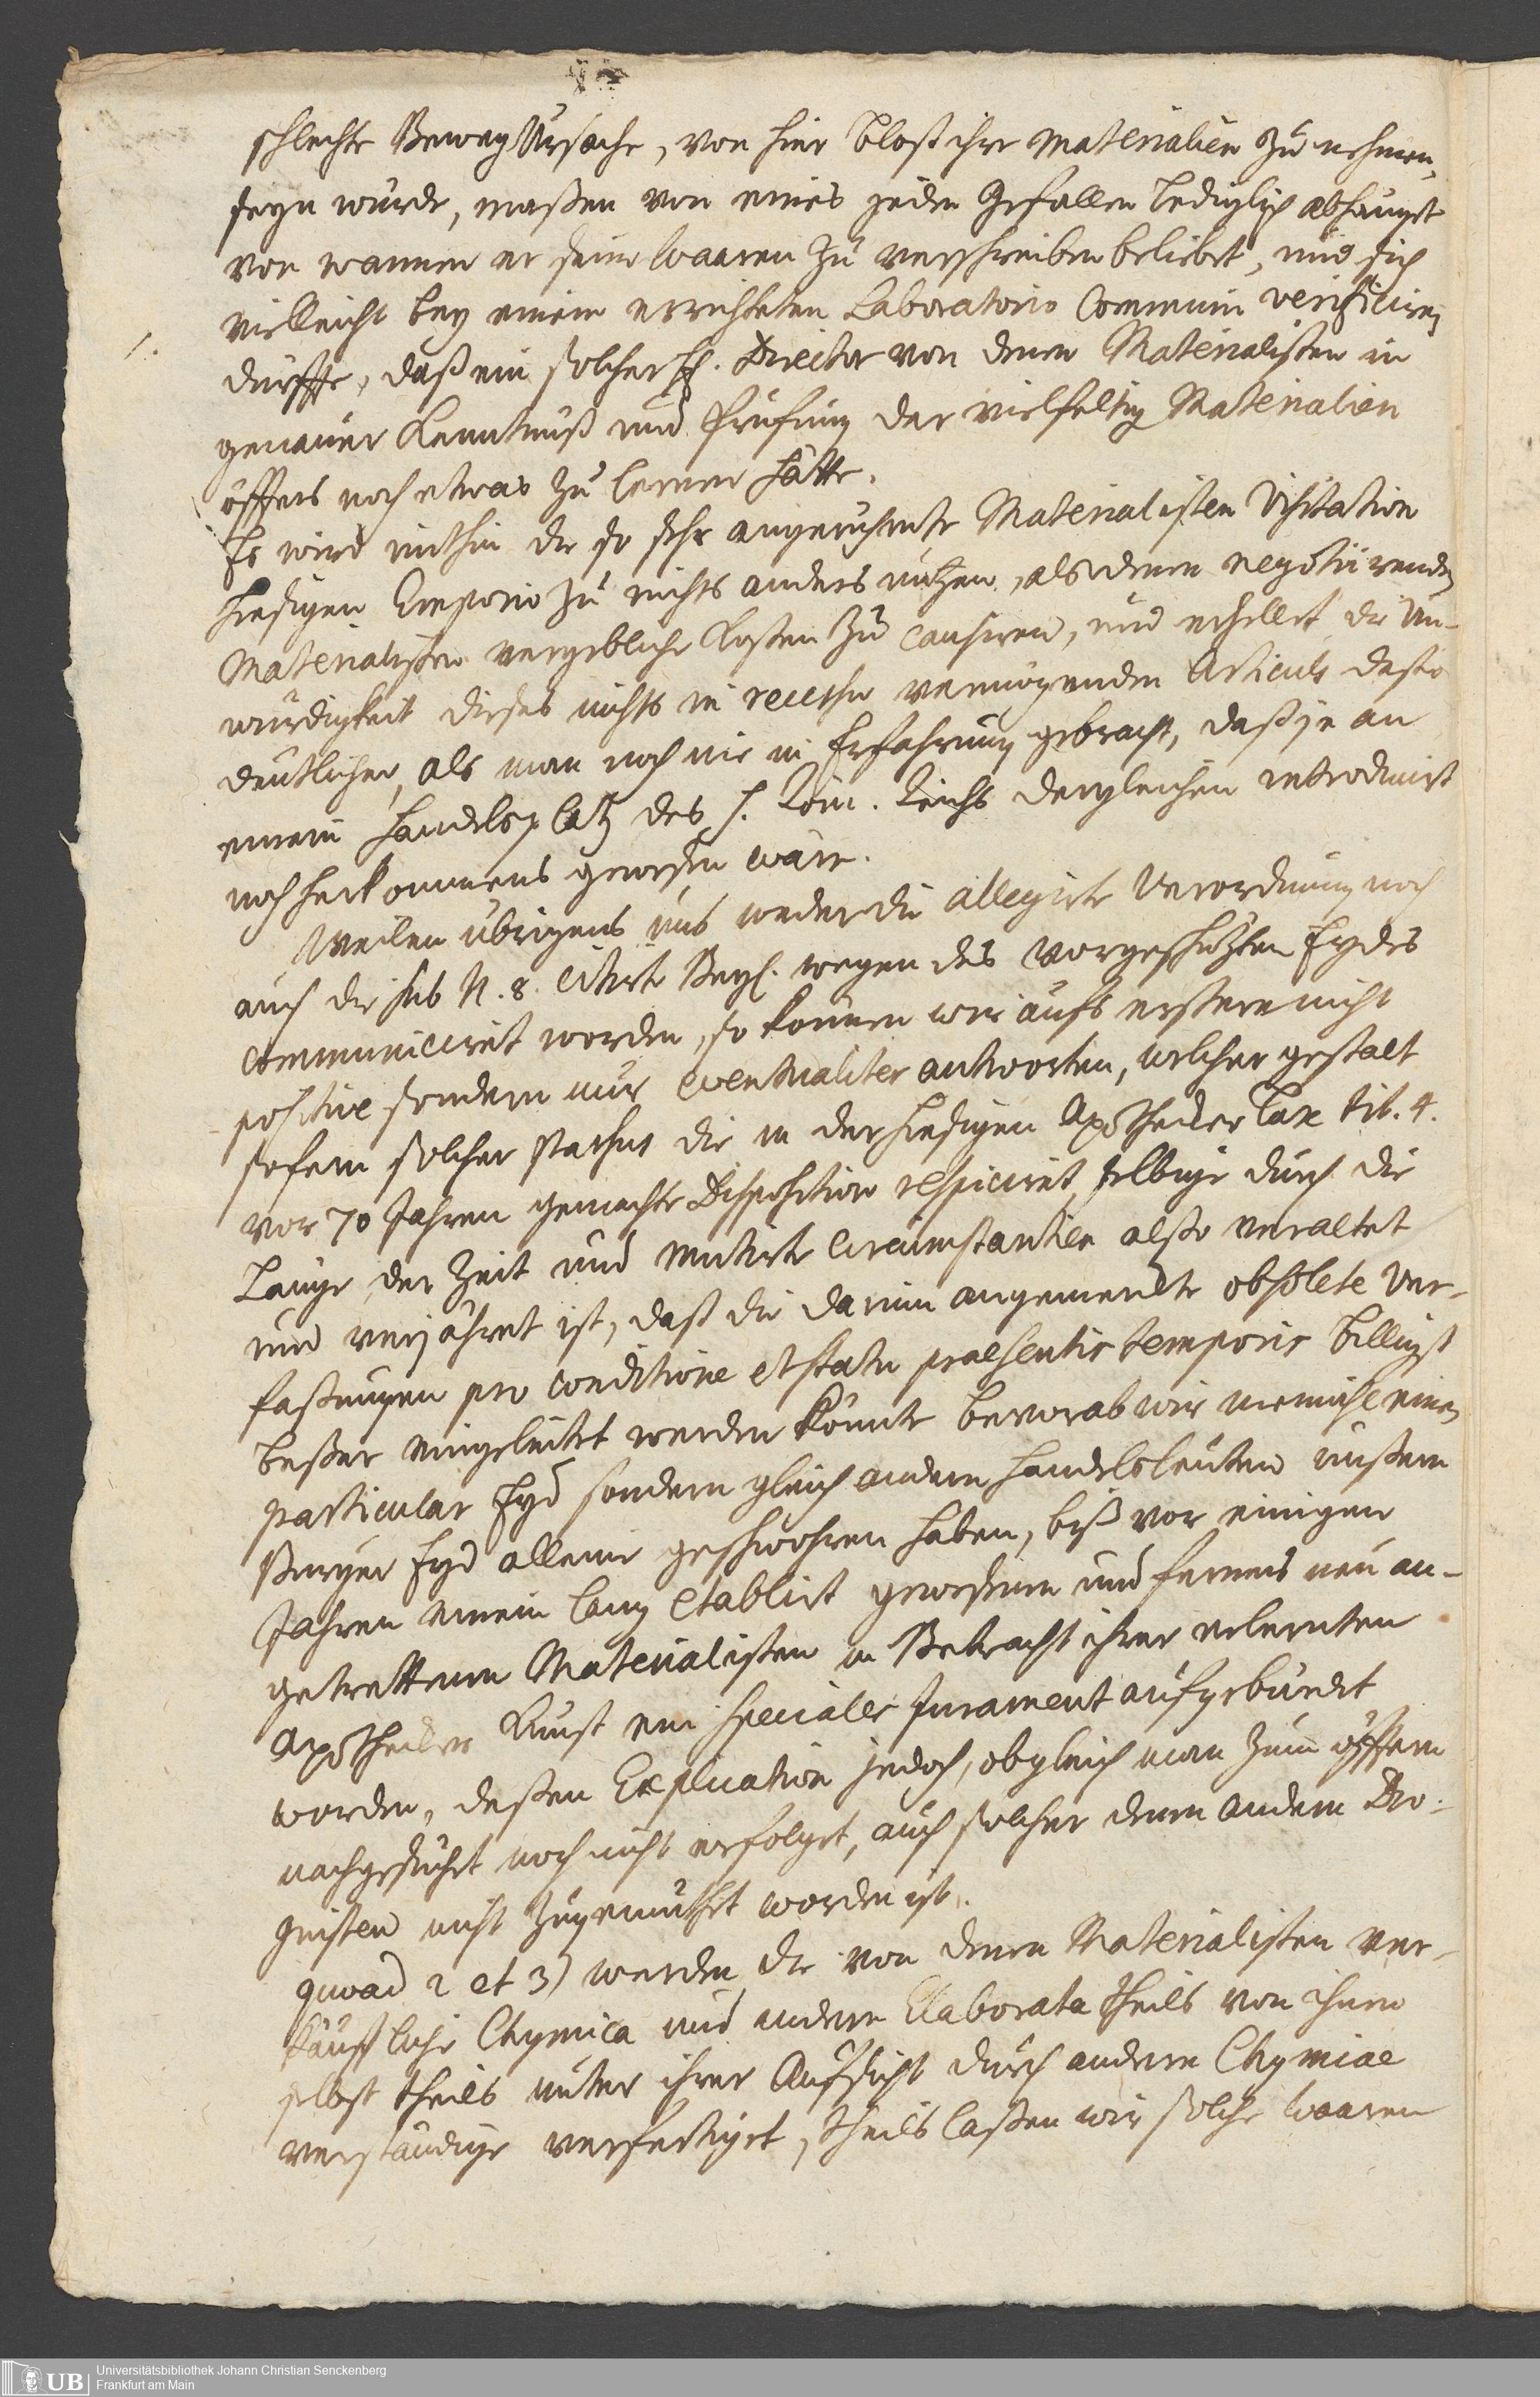 schlechte BewegUrsache, von hier bloß ihre Materialien zu nehmen,
seyn würde, maßen von eines jeden Gefallen lediglich abhanget
von wannen er seine Waaren zu verschreiben beliebet, und sich
vielleicht bey einem errichteten Laboratorio Communi verificiren
1.
dürffte, daß ein solcher H. Director von denen Materialisten in
genauer Kenntnuß und Prüfung der vielfeltig Materialien
öffters noch etwas zu lernen hätte.
Es wird mithin die so sehr angerühmte Materialisten Visitation
hiesigem Emporio zu nichts anders nützen, als denen negotiirenden
Materialisten vergebliche Kosten zu causiren, und erhellet die Un-
würdigkeit dieses nichts in recessu vermögenden Articuls desto
deutlicher, als man noch nie in Erfahrung gebracht, daß je an
einem Handelsplatz des H. Röm. Reichs dergleichen introducirt
noch herkommens gewesen wäre.
Weilen übrigens uns weder die allegirte Verordnung noch
auch die sub N. 8. citirte Beyl. wegen des vorgeschützten Eydes
communiciret worden, so können wir aufs erstere nicht
positive sondern nur eventualiter antworten, welcher gestalt
sofern solcher passus die in der hiesigen Apothecker Tax tit. 4.
vor 70 Jahren gemachte Disposition respiciret, selbige durch die
Länge der Zeit und mutirte Circumstantien also veraltet
und verjähret ist, daß die darinn angemerckte obsolete Ver-
faßungen pro conditione et statu praesentis temporis billigst
beßer eingeleitet werden könnte bevorab wir niemahl einen
particular Eyd sondern gleich andern Handelsleuten unßern
Burger Eyd alleine geschwohren haben, biß vor einigen
Jahren einem lang etablirt gewesenen und ferners neu an-
getrettenen Materialisten in Betracht ihrer erlernten
Apothecker Kunst ein speciales Jurament aufgebürdet
worden, deßen Explication jedoch, obgleich man zum öfftern
nachgesucht noch nicht erfolget, auch solcher denen andern Dro-
guisten nicht zugemuthet worden ist.
quoad 2 et 3) werden die von denen Materialisten ver-
käuffliche Chymica und andere Elaborata theils von ihnen
selbst theils unter ihrer Aufsicht durch andere Chymiae
verständige verfertiget, theils laßen wir solche Waaren
UB Universitätsbibliothek Johann Christian Senckenberg
Frankfurt am Main